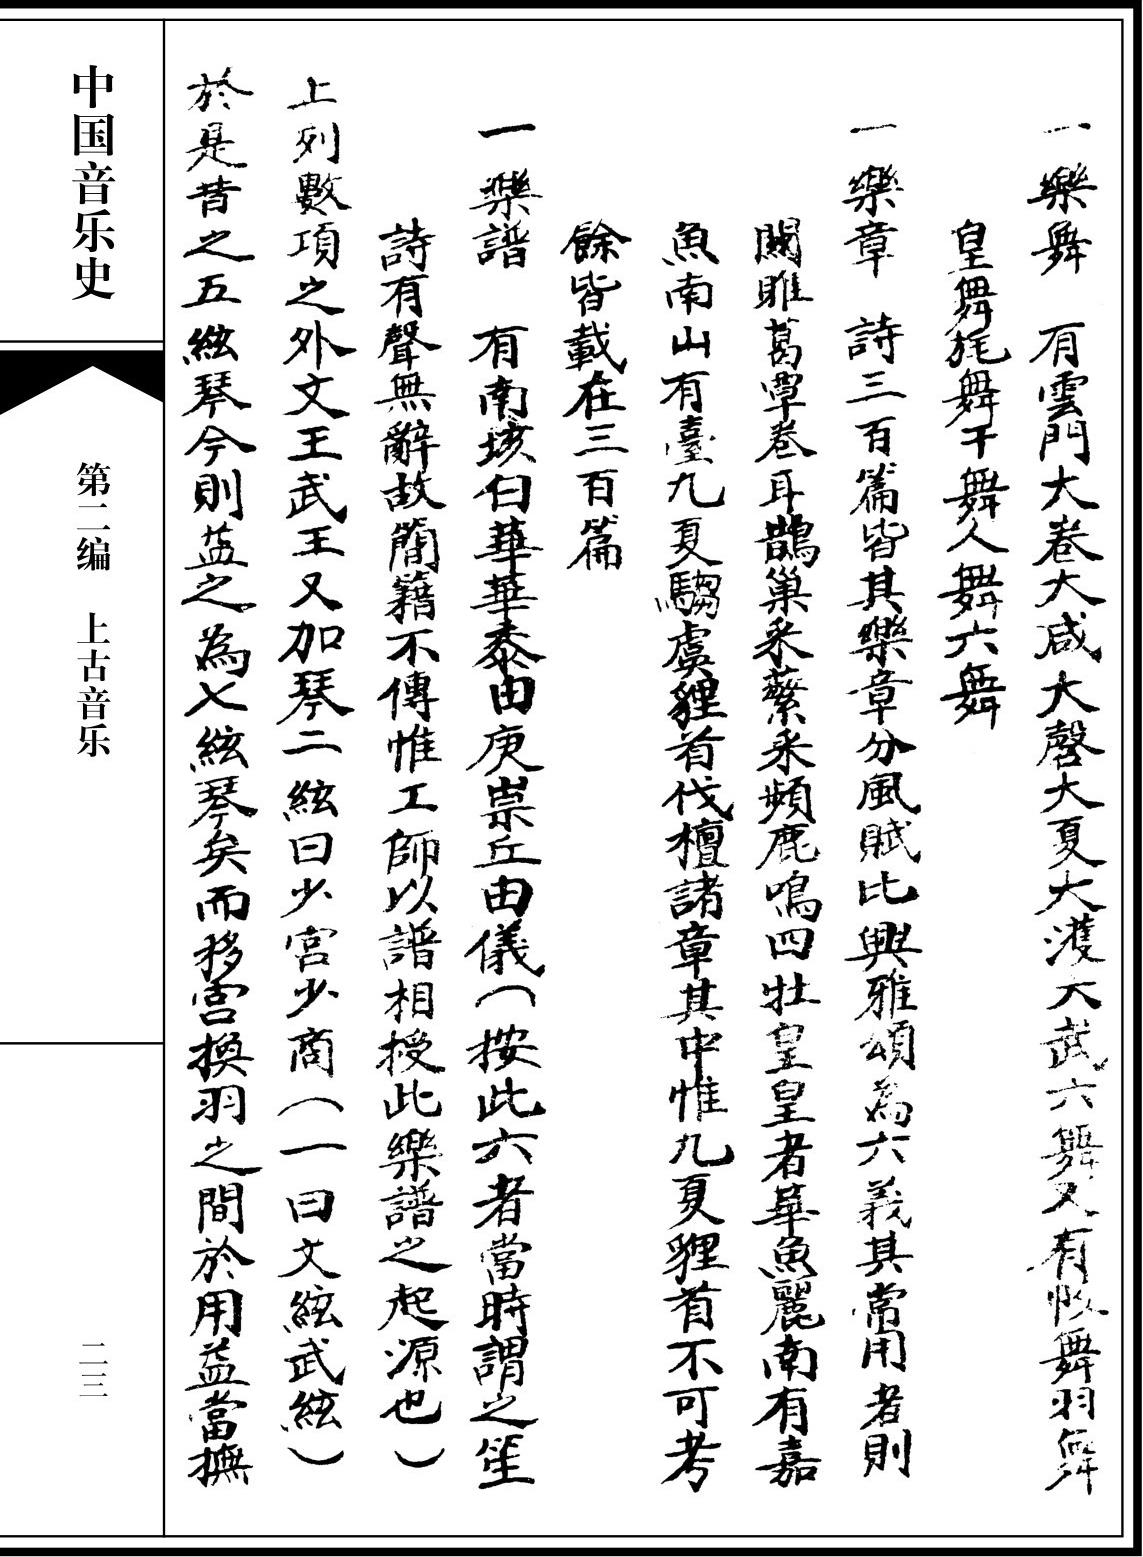 一樂舞　有雲門大卷大咸大磬大夏大濩大武六舞又有帗舞羽舞
皇舞旄舞干舞人舞六舞
一樂章　詩三百篇皆其樂章分風賦比興雅頌為六義其常用者則
關雎葛覃卷耳鵲巢采蘩采蘋鹿鳴四牡皇皇者華魚麗南有嘉
魚南山有臺九夏騶虞貍首伐檀諸章其中惟九夏貍首不可考
餘皆載在三百篇
一樂譜　有南垓白華華黍由庚崇丘由儀（按此六者當時謂之笙
詩有聲無辭故簡籍不傳惟工師以譜相授此樂譜之起源也）
上列數項之外文王武王又加琴二絃曰少宮少商（一曰文絃武絃）
於是昔之五絃琴今則益之為七絃琴矣而移宮換羽之間於用益當撫
中国音乐史
第二编　上古音乐
二三